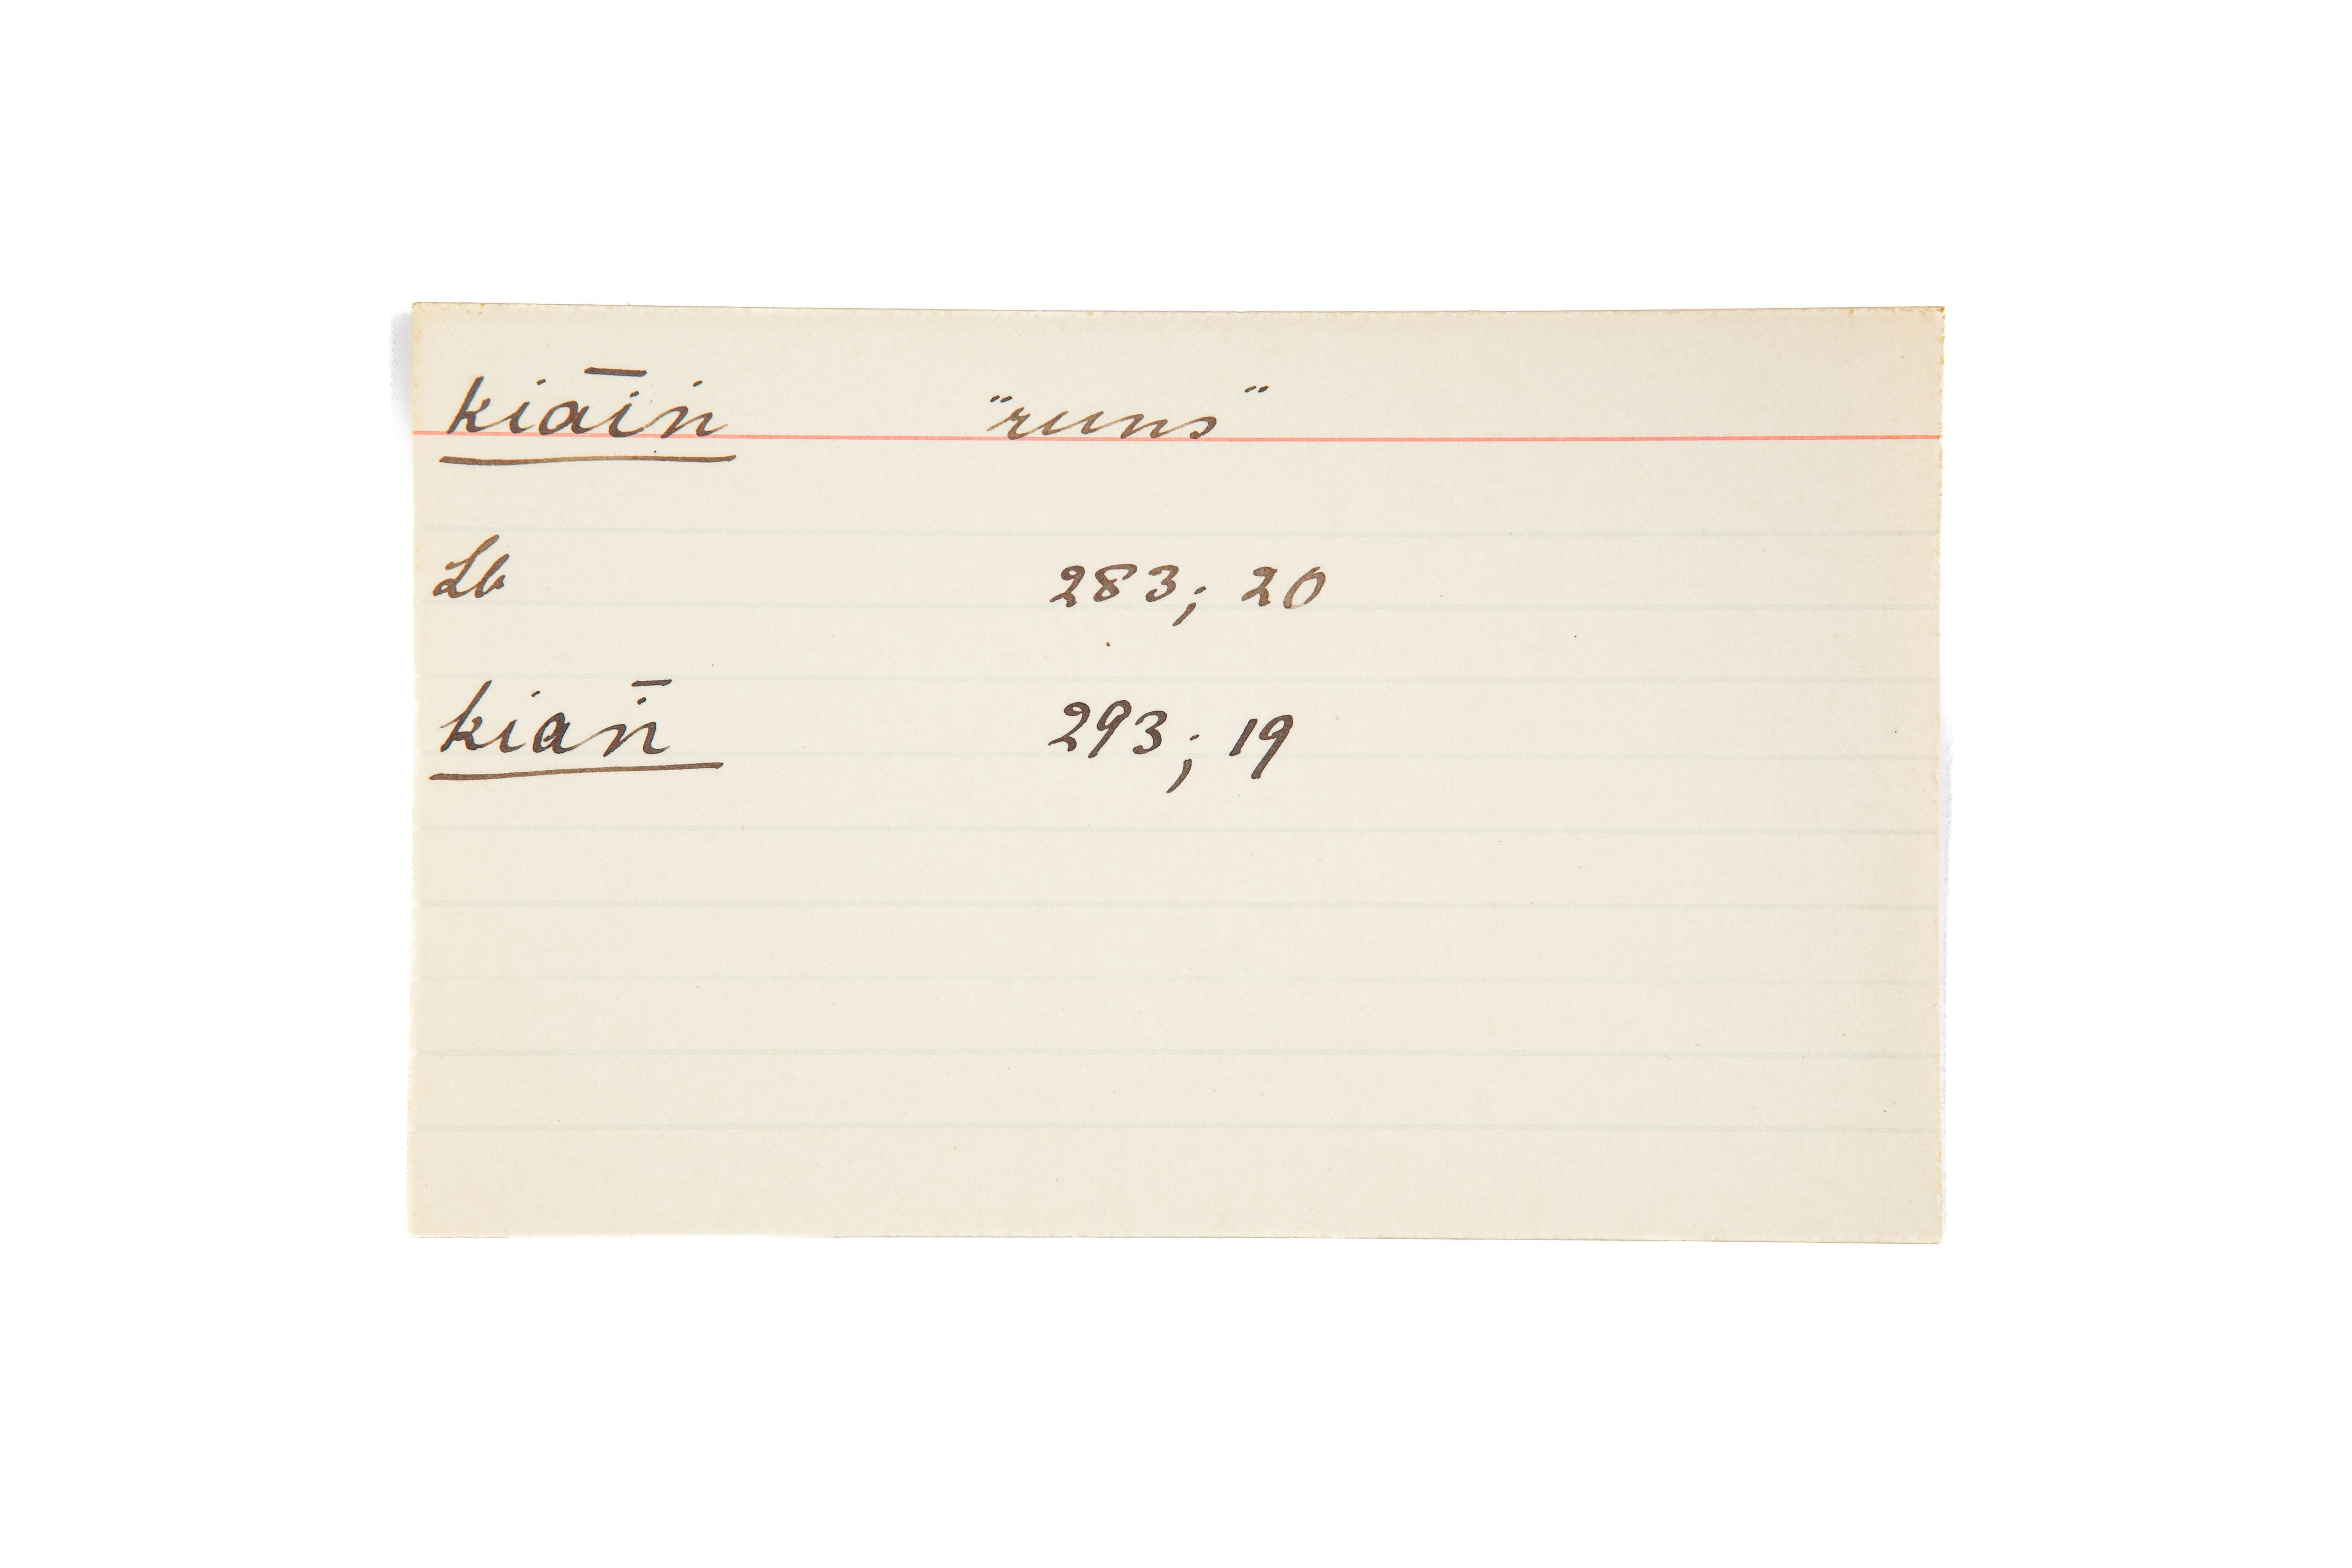 kiāiṅ "runs"
Lb 283; 20
kiāṅ 293; 19